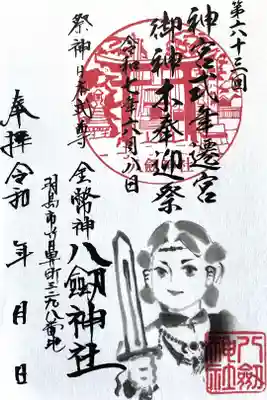 第六十三回
神宮式年遷宮
御神木奉迎祭
令和七年六月八日
祭神日本武尊
金幣神
八劔神社
羽島市
奉拝令和　年　月　日
八劔神社